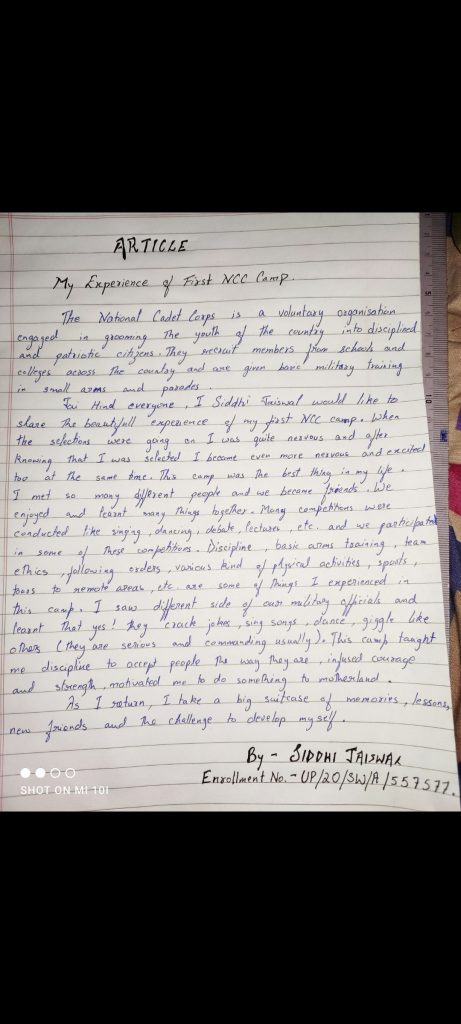 ARTICLE
My Experience of First NCC Camp.
The National Cadet Corps is a voluntary organisation
engaged in grooming the youth of the country into disciplined
and patriotic citizens. They recruit members from schools and
colleges across the country and are given basic military training
in small arms and parades.
Jai Hind everyone, I Siddhi Jaiswal would like to
share the beautifull experience of my first NCC camp. When
the selections were going on I was quite nervous and after
knowing that I was selected I became even more nervous and excited
too at the same time. This camp was the best thing in my life.
I met so many different people and we became friends. We
enjoyed and learnt many things together. Many competitions were
conducted like singing, dancing, debate, lectures, etc. and we participated
in some of these competitions. Discipline, basic arms training, team
ethics, following orders, various kind of physical activities, sports,
tours to remote areas, etc. are some of things I experienced in
this camp. I saw different side of our military officials and
learnt that yes! they crack jokes, sing songs, dance, giggle like
others (they are serious and commanding usually). This camp taught
me discipline to accept people the way they are, infused courage
and strength, motivated me to do something to motherland.
As I return, I take a big suitcase of memories, lessons,
new friends and the challenge to develop myself.
By - SIDDHI JAISWAL
Enrollment No. - UP/20/SW/A/557577.
SHOT ON MI 10I